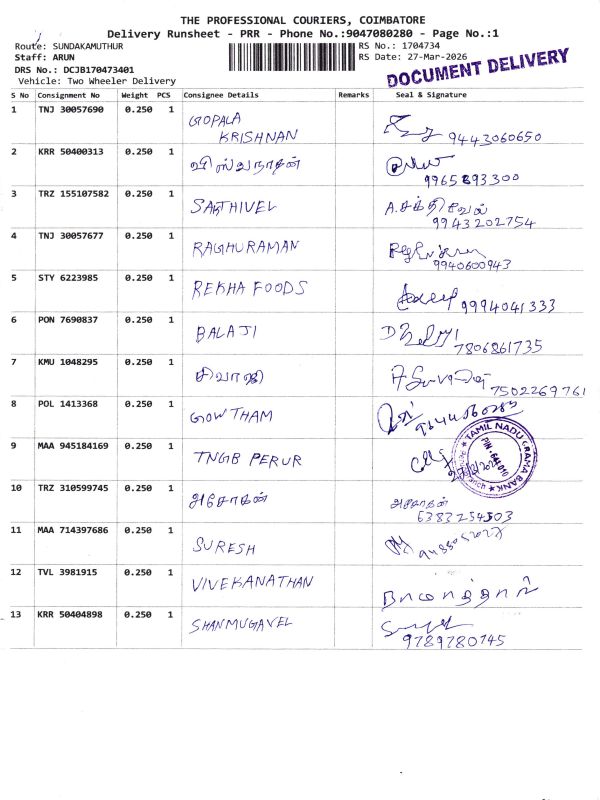 THE PROFESSIONAL COURIERS, COIMBATORE
Delivery Runsheet - PRR - Phone No.:9047080280 - Page No.:1
Route: SUNDAKAMUTHUR RS No.: 1704734
Staff: ARUN RS Date: 27-Mar-2026
DRS No.: DCJB170473401
Vehicle: Two Wheeler Delivery
DOCUMENT DELIVERY
S No Consignment No Weight PCS Consignee Details Remarks Seal & Signature
1 TNJ 30057690 0.250 1 GOPALA
KRISHNAN 9443060650
2 KRR 50400313 0.250 1 விஸ்வநாதன்
9965893300
3 TRZ 155107582 0.250 1 SAKTHIVEL A.சக்திவேல்
9943202754
4 TNJ 30057677 0.250 1 RAGHURAMAN
9940600943
5 STY 6223985 0.250 1 REKHA FOODS 9994041333
6 PON 7690837 0.250 1 BALAJI
7806861735
7 KMU 1048295 0.250 1 சிவாஜி
7502269761
8 POL 1413368 0.250 1 GOWTHAM
9 MAA 945184169 0.250 1 TNGB PERUR
TAMIL NADU GRAMA BANK
10 TRZ 310599745 0.250 1 அசோகன் அசோகன்
6383254503
11 MAA 714397686 0.250 1 SURESH
12 TVL 3981915 0.250 1 VIVEKANATHAN
13 KRR 50404898 0.250 1 SHANMUGAVEL
9789780745